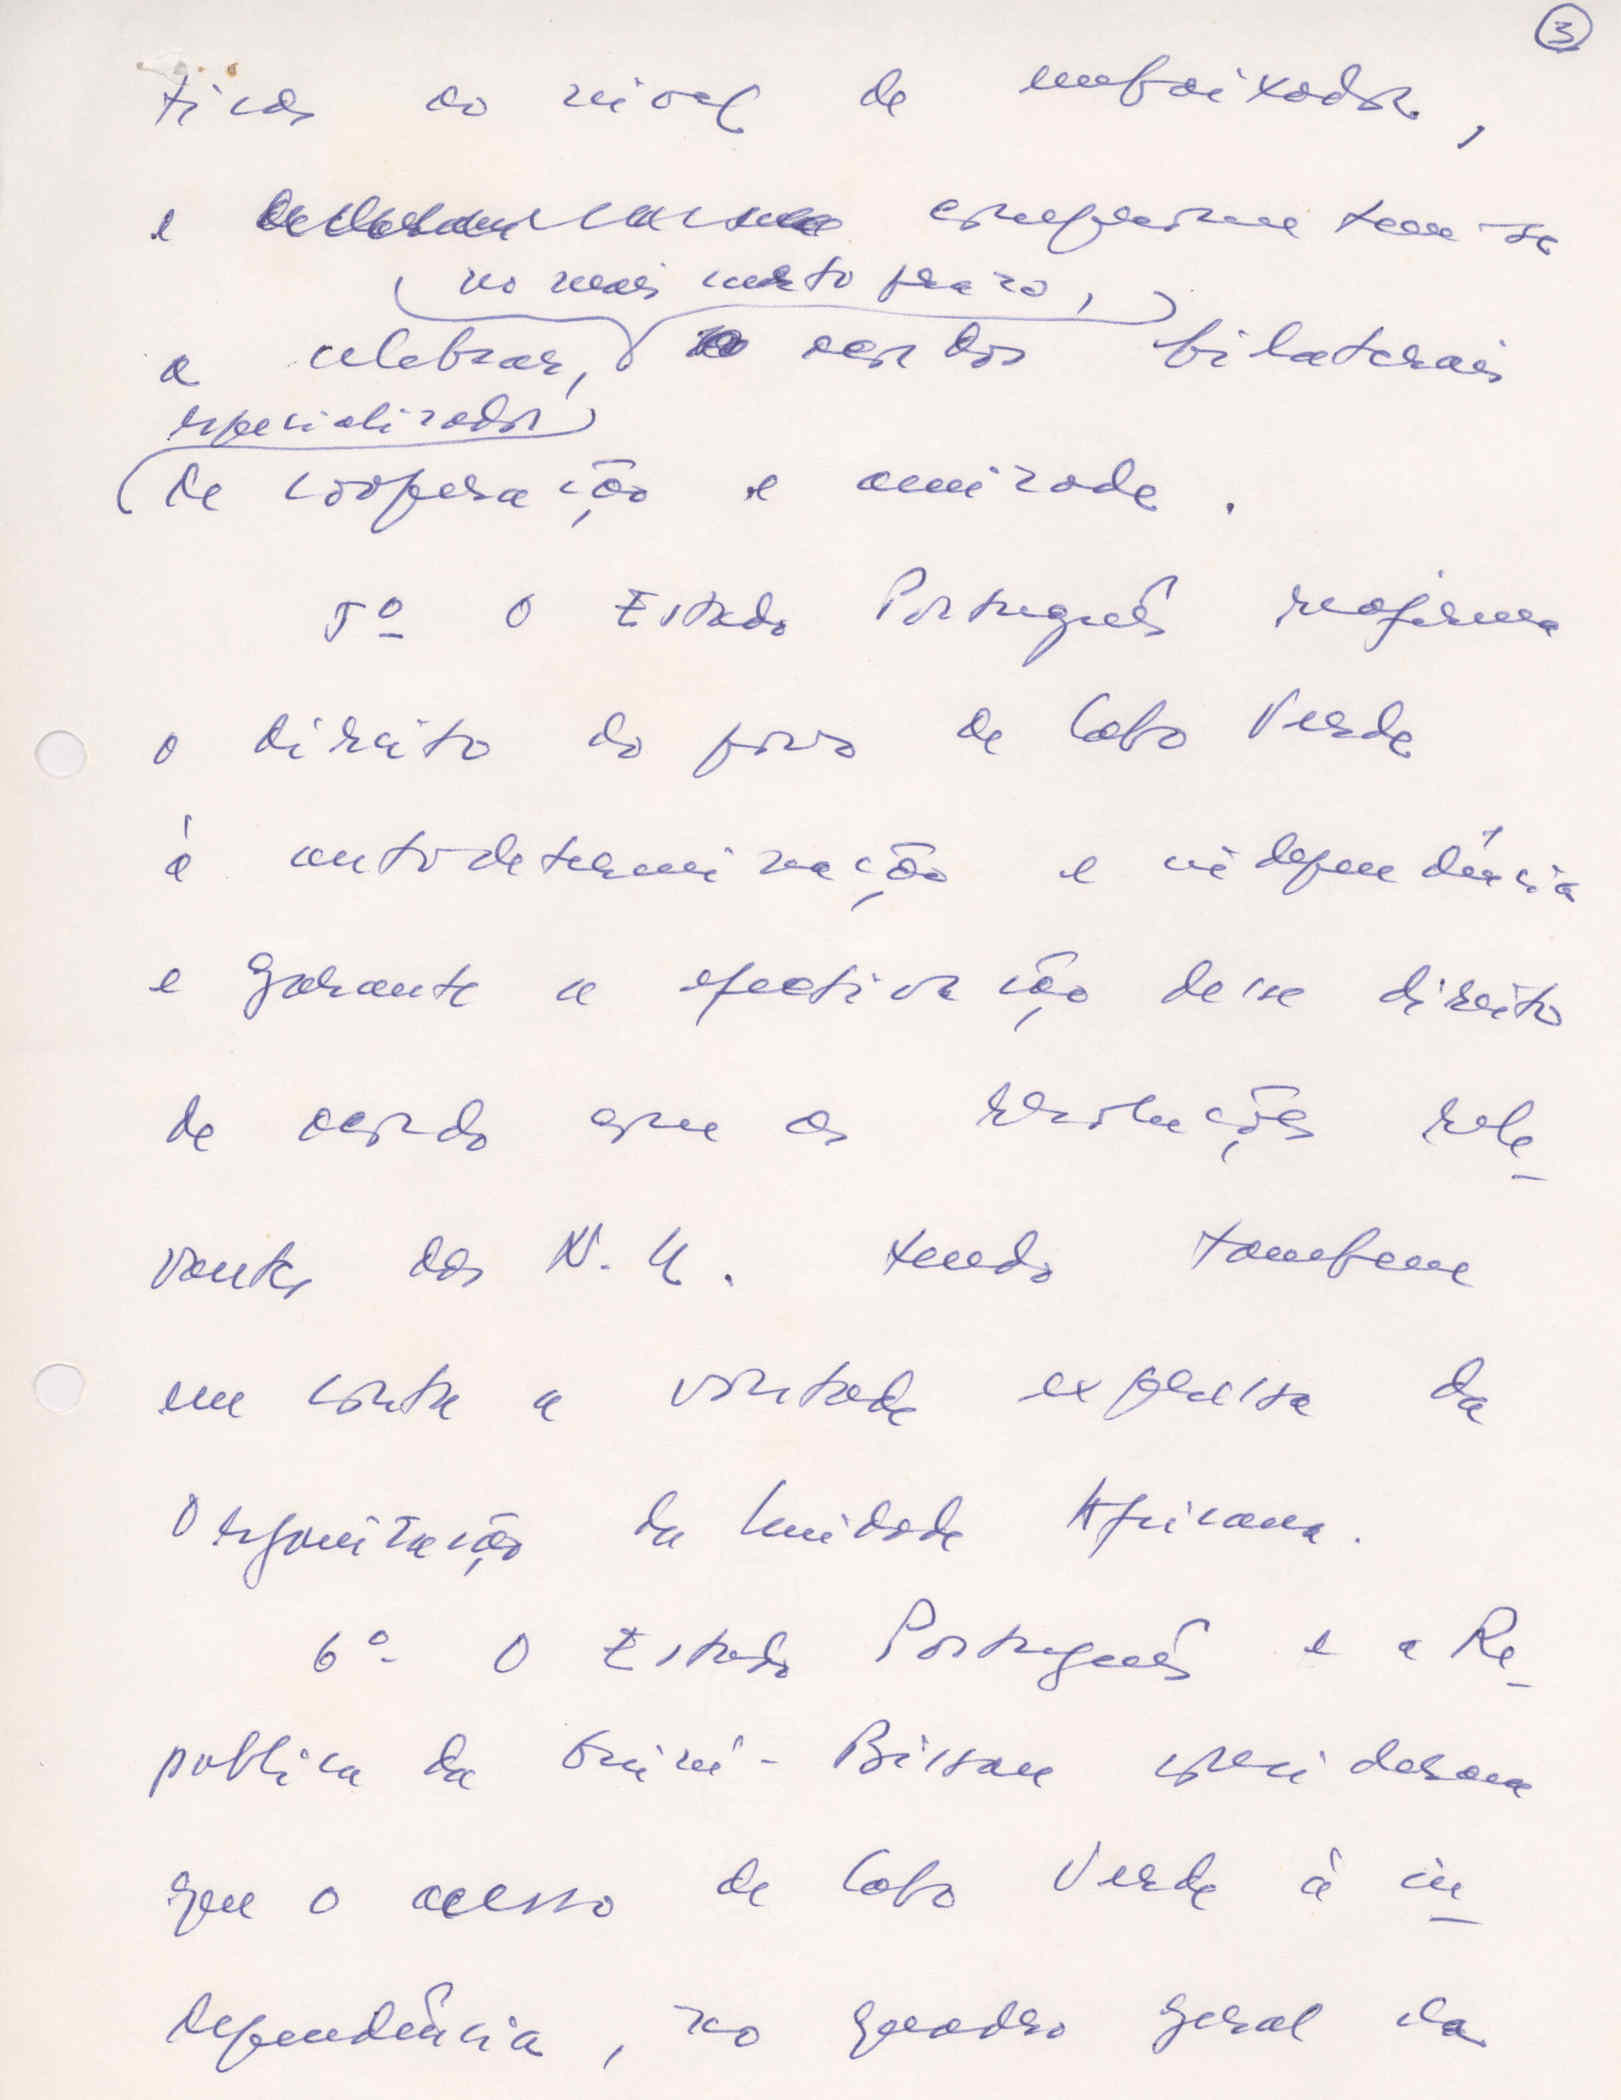 3
ticas ao nivel de embaixador,
e comprometem-se
no mais curto prazo,
a celebrar, acordos bilaterais
especializados
de cooperação e amizade.
5º O Estado Português reafirma
o direito do povo de Cabo Verde
à autodeterminação e independência
e garante a efectivação desse direito
de acordo com as resoluções rele-
vantes das N.U. tendo tambem
em conta a vontade expressa da
Organização da Unidade Africana.
6º O Estado Português e a Re-
publica da Guiné-Bissau consideram
que o acesso de Cabo Verde à in-
dependência, no quadro geral da